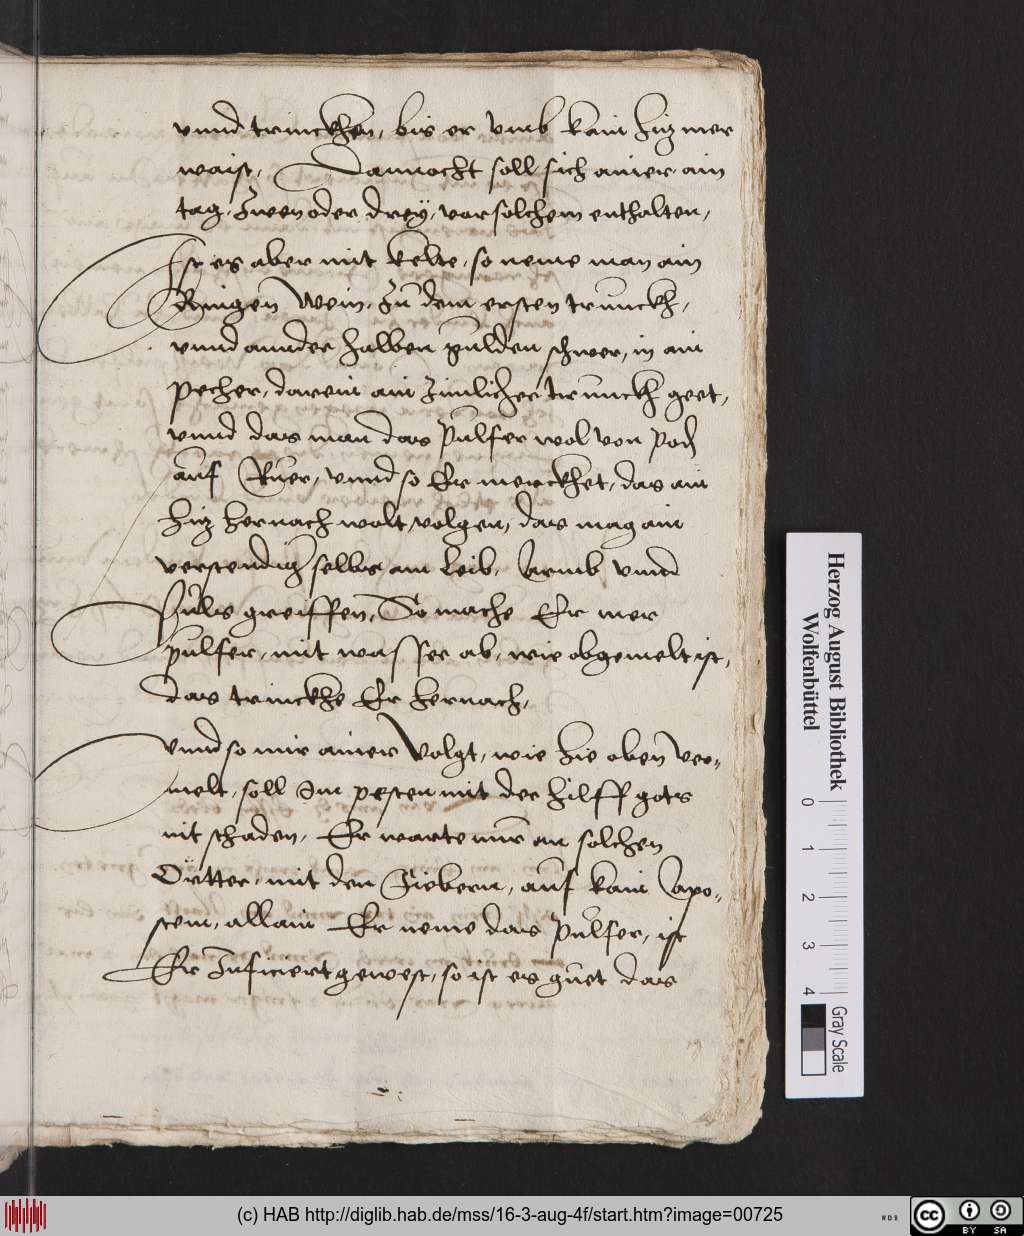 vnnd trinckhen, bis er vmb kain hiz mer
waist, Dannocht soll sich ainer ain
tag, Zwen oder dreÿ, vor solchem enthalten,
Ist es aber mit kelte, so neme man ain
Ringen Wein, zu dem ersten trunckh,
vnnd annder halben gulden schwer, in ain
pecher, darein ain zimlicher trunckh geet,
vnnd das man das Pulfer wol von Poden
auf Ruer, vnnd so Er merckhet, das ain
hiz hernach wolt volgen, das mag ain
verstendig selbs am Leib, Armb vnnd
Puls greiffen, So mache Er mer
pulfer, mit wasser ab, wie obgemelt ist,
das trinckhe Er hernach,
Vnnd so mir ainer Volgt, wie hie oben ver-
melt, soll Im pesten mit der hilff gots
nit schaden, Er warte nur an solchen
Örtter, mit den Fiebern, auf kain Apo-
stem, allain Er neme das Pulfer, ist
Er Inficiert gewest, so ist es guet das
Herzog August Bibliothek
Wolfenbüttel
0
1
2
3
4
Gray Scale
(c) HAB http://diglib.hab.de/mss/16-3-aug-4f/start.htm?image=00725
WDB
cc
BY SA